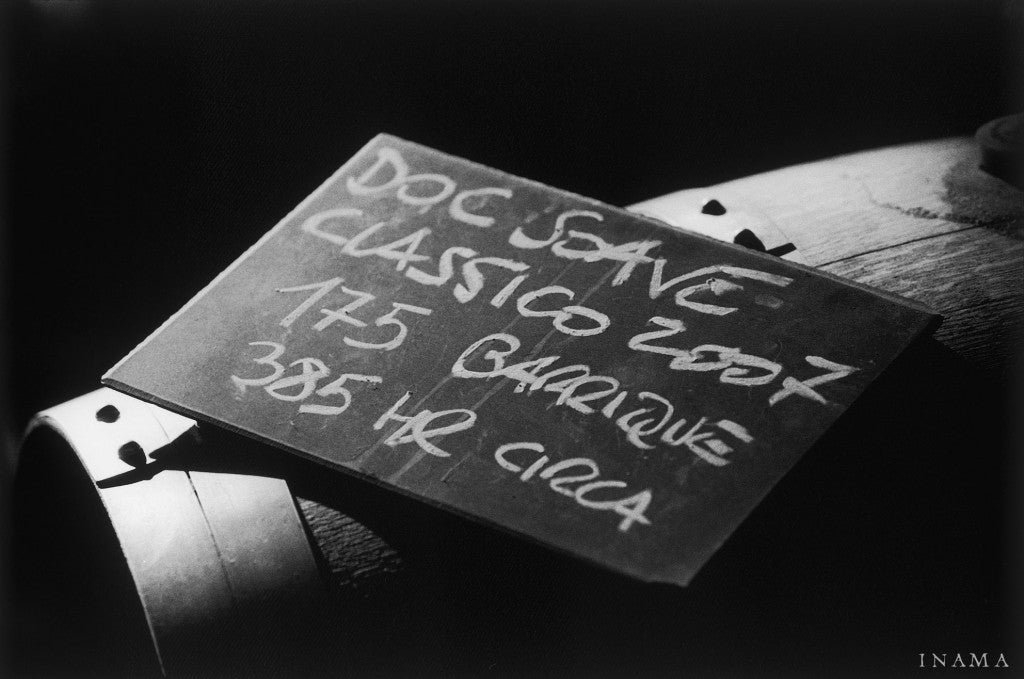 DOC SOAVE
CLASSICO 2007
175 BARRIQUE
385 HR CIRCA
INAMA